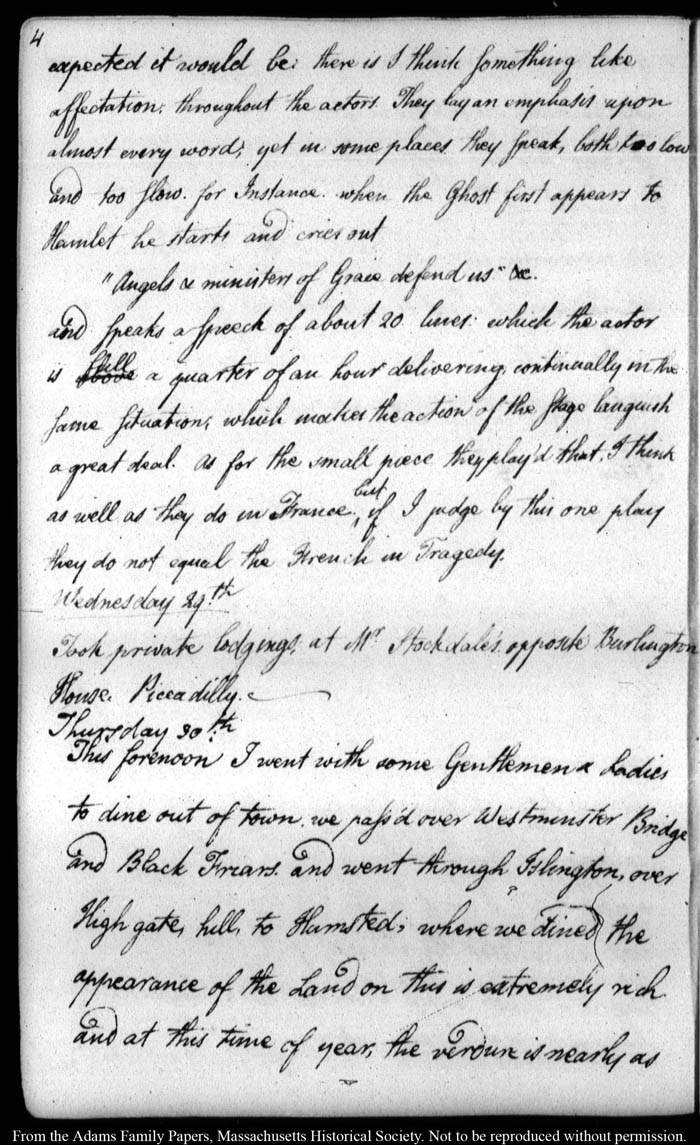 4
expected it would be: there is I think something like
affectation, throughout the actors. They lay an emphasis upon
almost every word; yet in some places they speak, both too low
and too slow. for Instance. when the Ghost first appears to
Hamlet he starts and cries out
"Angels & ministers of Grace defend us" &c.
and speaks a speech of about 20 lines: which the actor
is full a quarter of an hour delivering, continually in the
same situation, which makes the action of the Stage languish
a great deal. as for the small piece they play'd that, I think
as well as they do in France, but if I judge by this one play
they do not equal the French in Tragedy.
Wednesday 29.th
Took private lodgings, at Mr Stockdale's, opposite Burlington
House. Piccadilly.
Thursday 30.th
This forenoon I went with some Gentlemen & Ladies
to dine out of town. we pass'd over Westminster Bridge
and Black Friars. and went through Islington, over
High gate, hill, to Hamsted; where we dined the
appearance of the Land on this is extremely rich
and at this time of year, the verdure is nearly as
From the Adams Family Papers, Massachusetts Historical Society. Not to be reproduced without permission